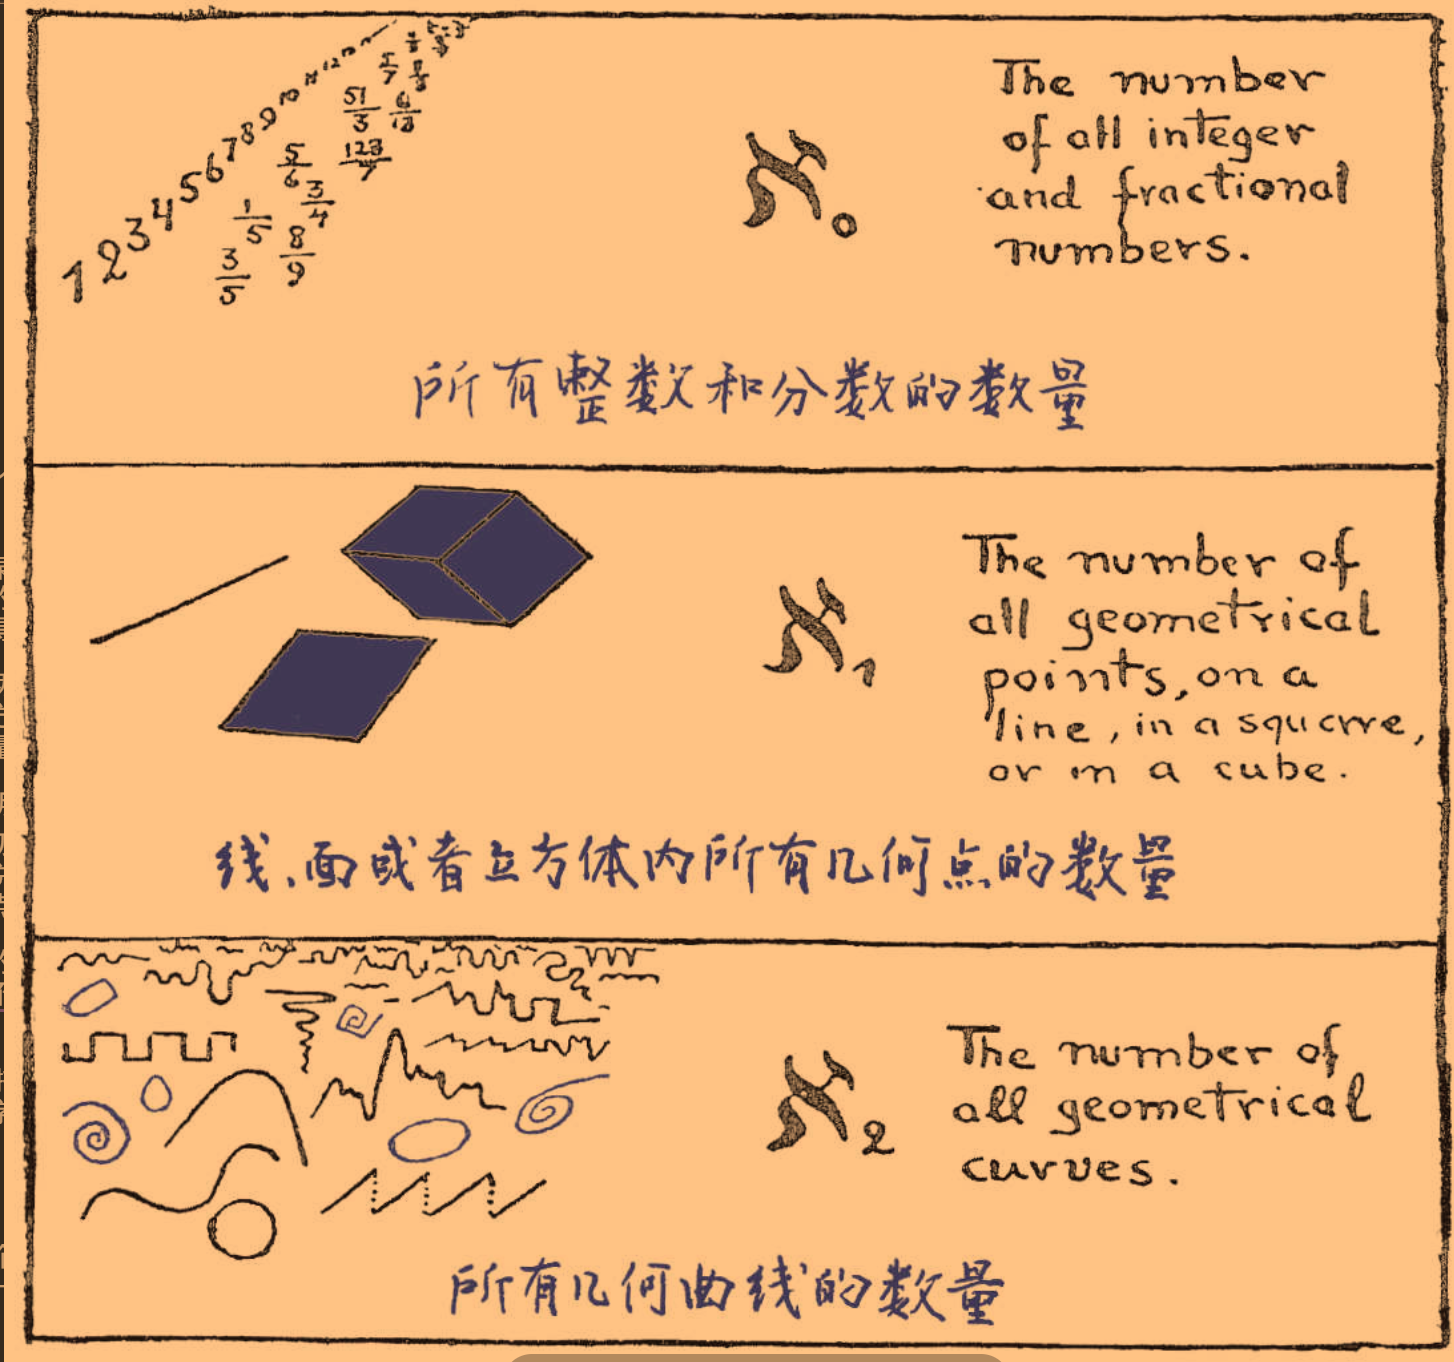 1 2 3 4 5 6 7 8 9 10 11 12
3/5 1/5 8/9 5/6 3/4 123/7 51/3
ℵ0
The number
of all integer
and fractional
numbers.
所有整数和分数的数量
ℵ1
The number of
all geometrical
points, on a
line, in a square,
or in a cube.
线、面或者立方体内所有几何点的数量
ℵ2
The number of
all geometrical
curves.
所有几何曲线的数量